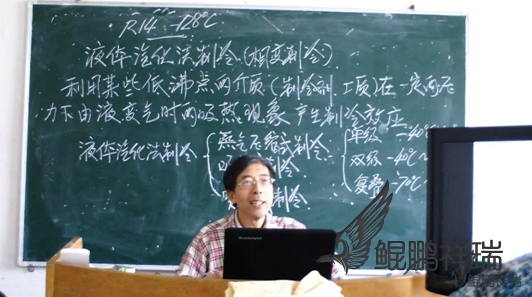 R14 -128℃
液体汽化法制冷(相变制冷)
利用某些低沸点的介质(制冷剂、工质)在一定的压
力下由液变气时的吸热现象产生制冷效应
液体汽化法制冷
蒸气压缩式制冷
制冷
制冷
单级 -40℃
双级 -40℃~
复叠 -70℃
lenovo
鲲鹏祥瑞